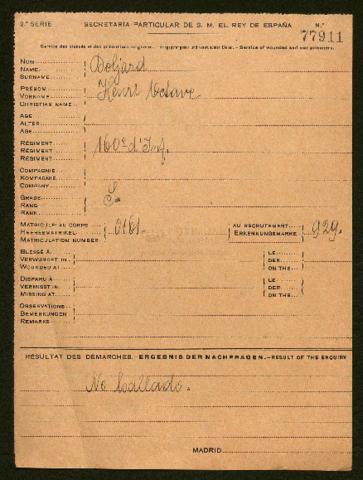 2.ª SERIE SECRETARÍA PARTICULAR DE S. M. EL REY DE ESPAÑA N.º
77911
Service of wounded and war prisoners.
NOM
NAME
SURNAME
PRÉNOM
VORNAME
CHRISTIAN NAME
Henri Octave
AGE
ALTER
AGE
RÉGIMENT
REGIMENT
REGIMENT
160e d'Inf.
COMPAGNIE
KOMPAGNIE
COMPANY
GRADE
RANG
RANK
S.
MATRICULE AU CORPS
MATRICULATION NUMBER
AU RECRUTEMENT
ERKENNUNGSMARKE
929.
BLESSÉ A
VERWUNDET IN
WOUNDED AT
LE
DER
ON THE
DISPARU A
VERMISST IN
MISSING AT
LE
DER
ON THE
OBSERVATIONS
BEMERKUNGEN
REMARKS
RÉSULTAT DES DÉMARCHES.-ERGEBNIS DER NACHFRAGEN.-RESULT OF THE ENQUIRY
No hallado.
MADRID